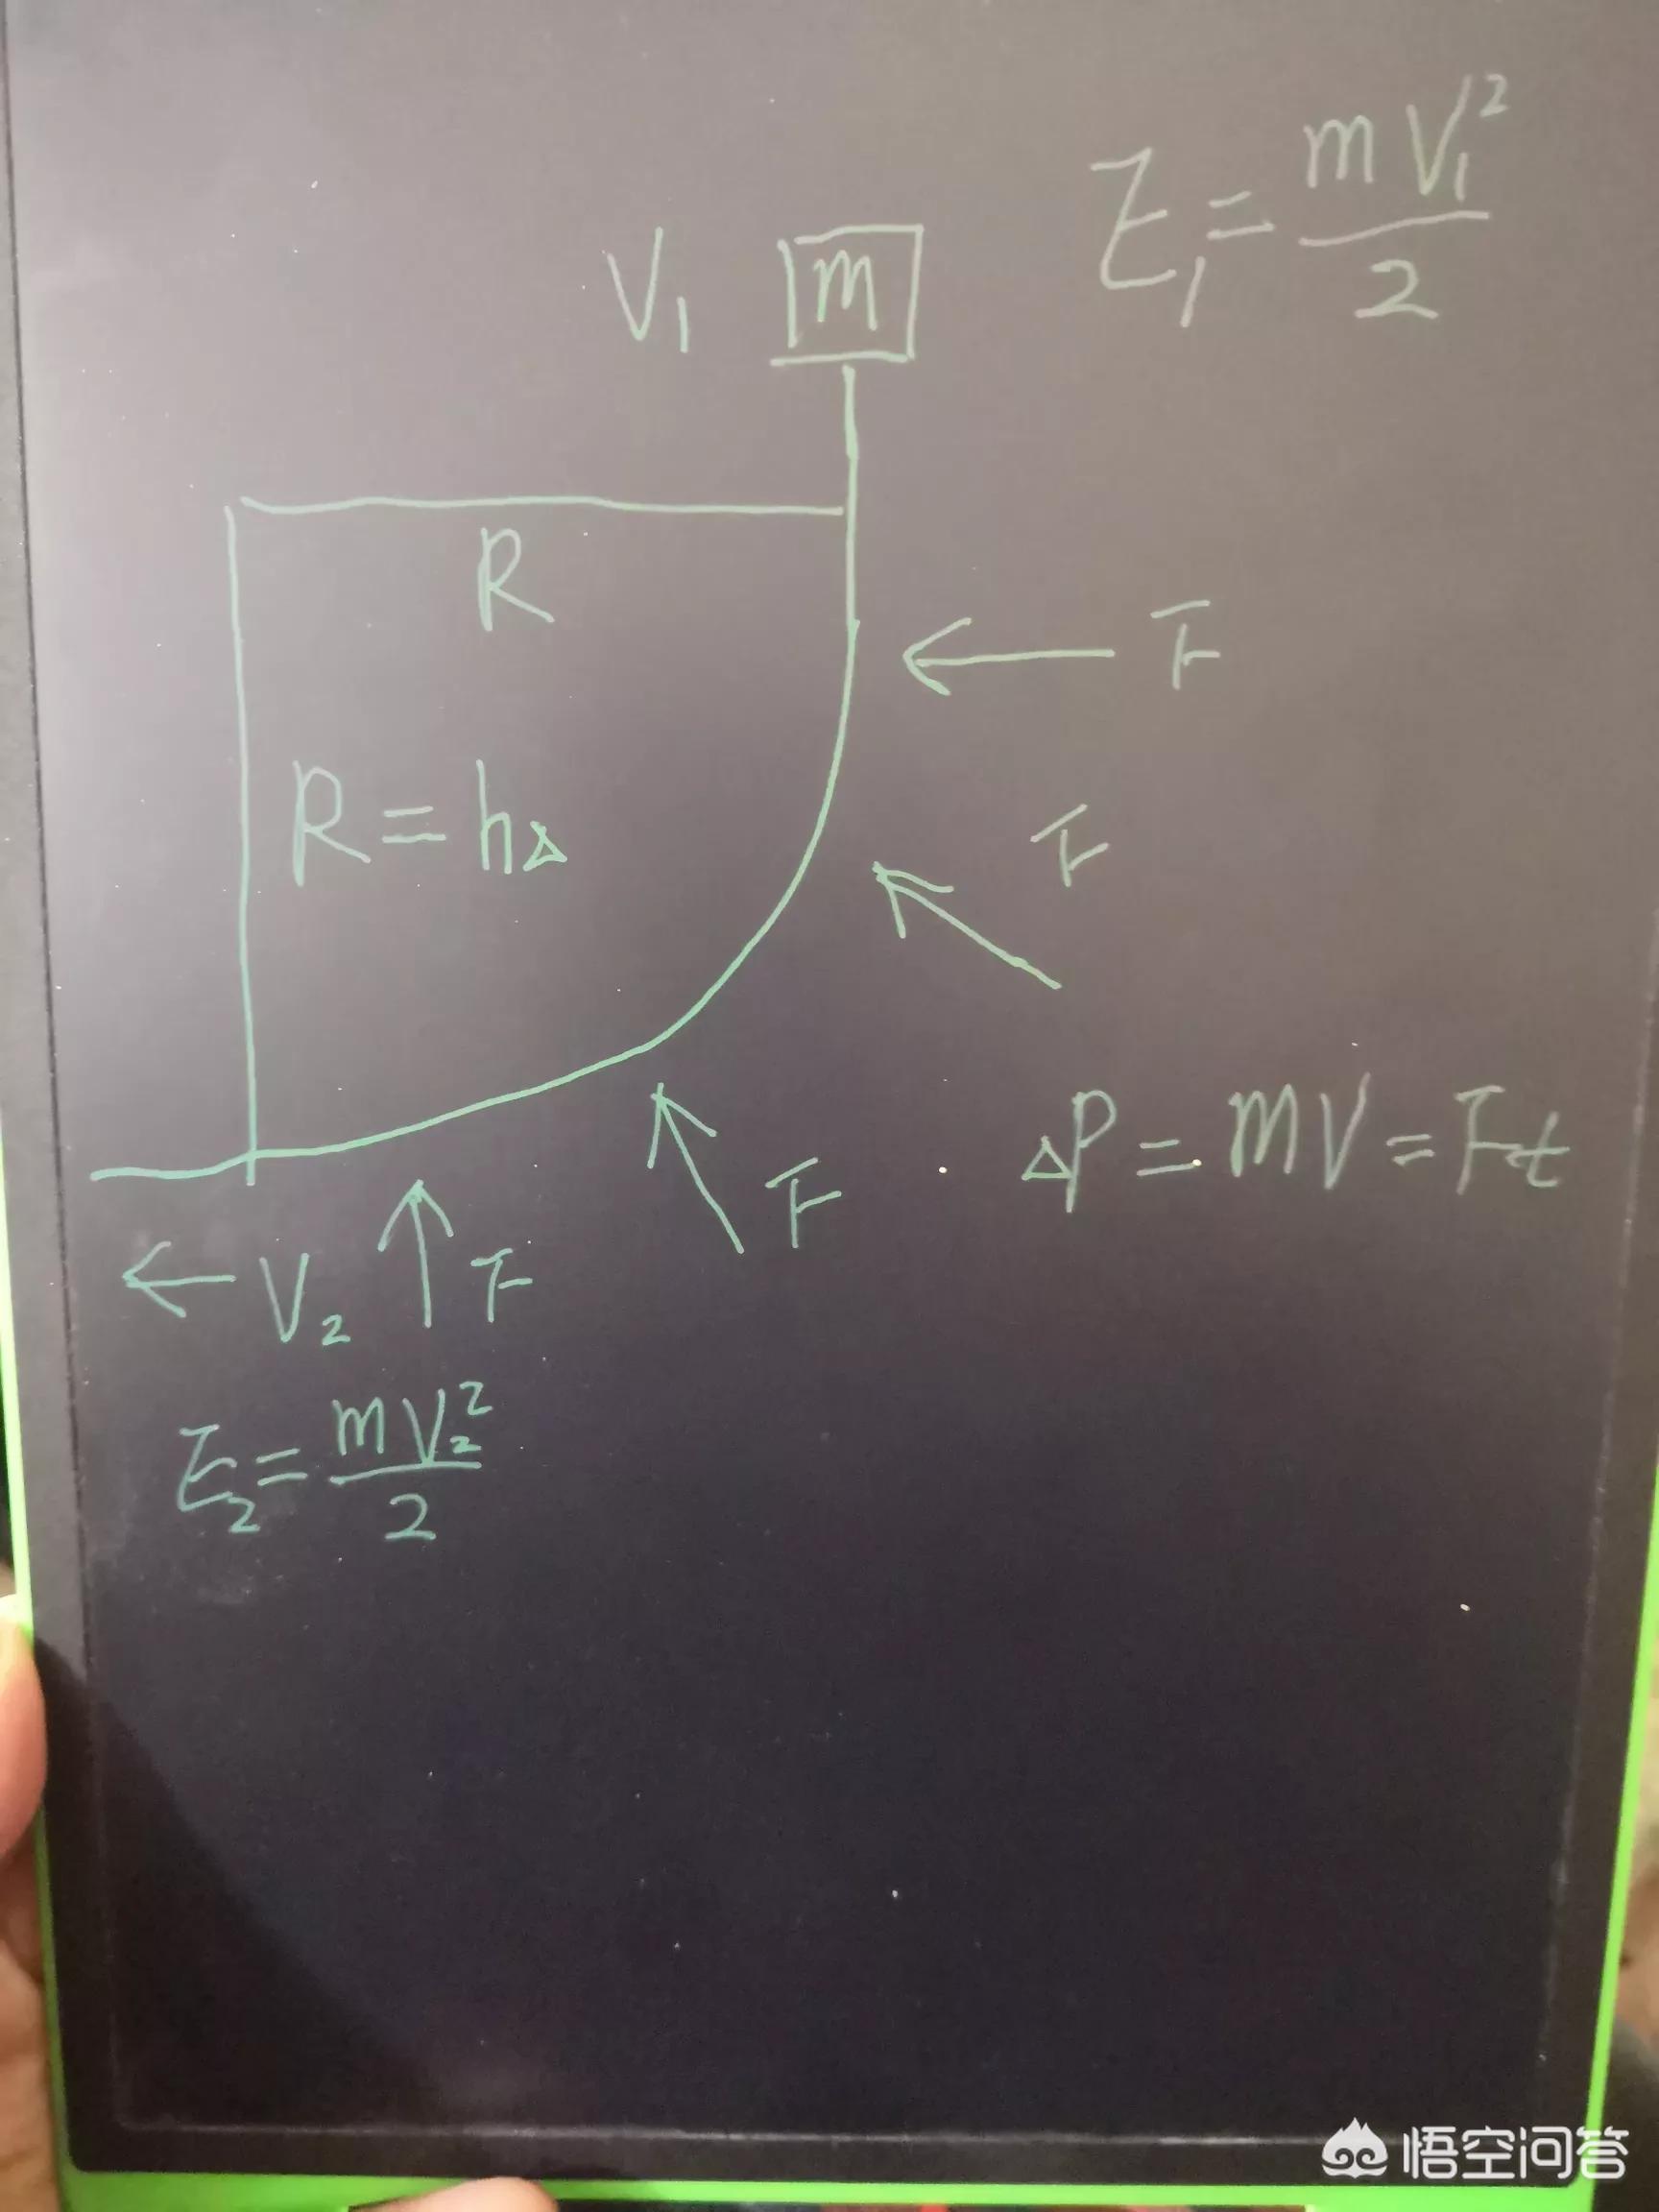 E₁ = mV₁²/2
V₁ m
R
F
R = h△
F
△P = mV = Ft
F
← V₂ F
E₂ = mV₂²/2
悟空问答